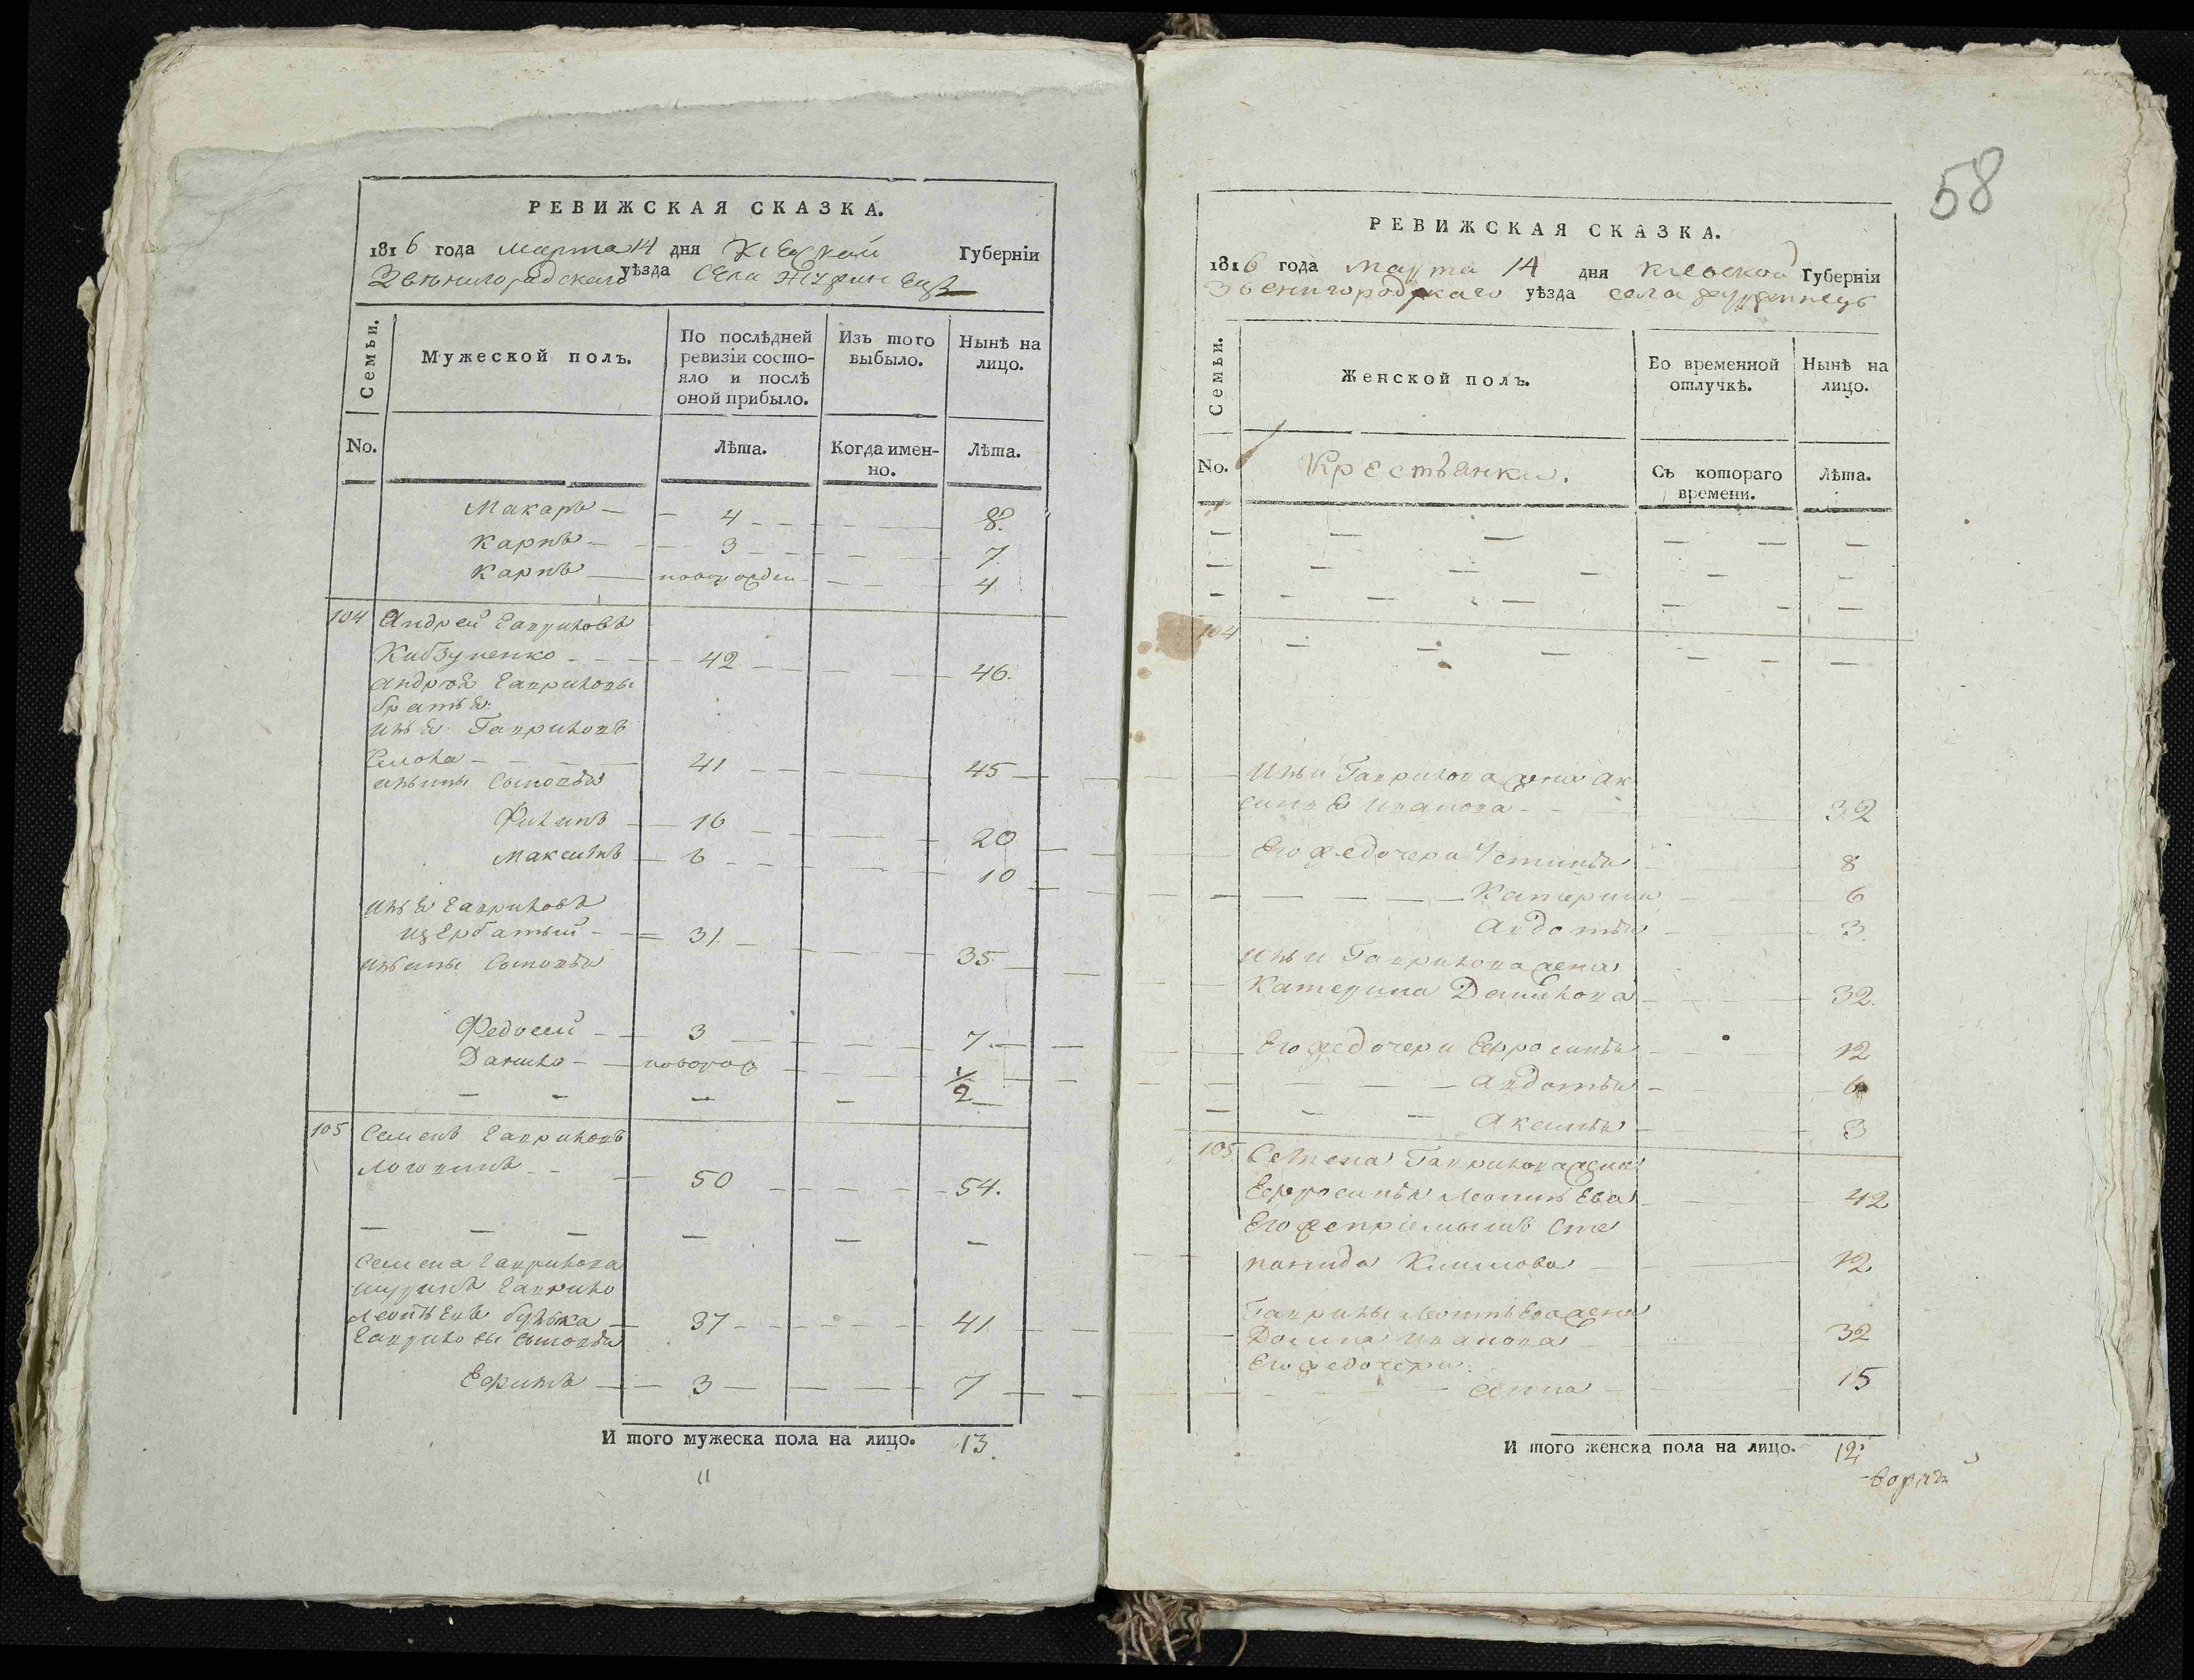 РЕВИЖСКАЯ СКАЗКА.
1816 года марта 14 дня Киевской Губерніи
Звенигородскаго уѣзда Села Журжинецъ
Семьи.
Мужеской полъ.
По послѣдней ревизіи состо-
яло и послѣ
оной прибыло.
Изъ того
выбыло.
Нынѣ на
лицо.
No.
Лѣта.
Когда имен-
но.
Лѣта.
Макаръ 4 8.
Карпъ 3 7.
Карпъ новорожден 4
104 Андрей Гавриловъ
Кибзуненко 42 46.
Андрея Гавриловы
братья:
Илья Гавриловъ
41 45
Ильины сыновья
Филипъ 16 20
Максимъ 6 10
Илья Гавриловъ
Щербатый 31. 35.
Ильины сыновья
Федосей 3 7.
Данило новорож 1/2
105 Семенъ Гавриловъ
Логвинъ 50 54.
Семена Гаврилова
шуринъ Гаврило
Леонтьевъ 37 41
Гавриловы сыновья
Ефимъ 3 7
И того мужеска пола на лицо. 13.
58
РЕВИЖСКАЯ СКАЗКА.
1816 года марта 14 дня Киевской Губерніи
Звенигородскаго уѣзда села Журжинецъ
Семьи.
Женской полъ.
Во временной
отлучкѣ.
Нынѣ на
лицо.
No.
Крестьянки.
Съ котораго
времени.
Лѣта.
104
Ильи Гаврилова жена Ак
синья Иванова 32
Его же дочери Устинья 8
Катерина 6
Авдотья 3.
Ильи Гаврилова жена
Катерина Данилова 32.
Его же дочери Ефросинья 12
Авдотья 6
Аксинья 3
105. Семена Гаврилова жена
Ефросинья Леонтьева 42
Его же Сте
панида Климова 12
Гаврилы Леонтьева жена
Домна Иванова 32
Его же дочери:
Анна 15
И того женска пола на лицо. 12.